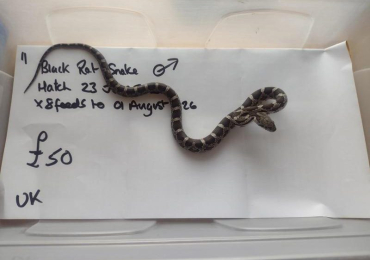 11
Black Rat Snake ♂
Hatch 23 J
x8 feeds to 01 August 26
£
£50
UK